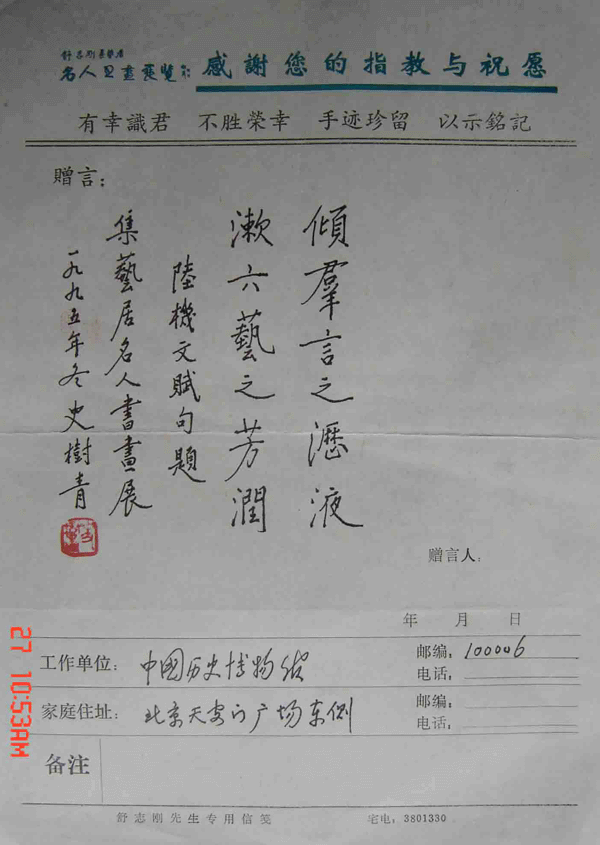 舒志刚善举者
名人书画展览
感謝您的指教与祝愿
有幸識君 不胜榮幸 手迹珍留 以示銘記
贈言：
傾羣言之瀝液
漱六藝之芳潤
陸機文賦句題
集藝居名人書畫展
一九九五年冬史樹青
赠言人：
年 月 日
工作单位： 中國历史博物馆
邮编： 100006
电话：
家庭住址： 北京天安门广场东侧
邮编：
电话：
备注
舒志刚先生专用信笺 宅电：3801330
27 10:53AM